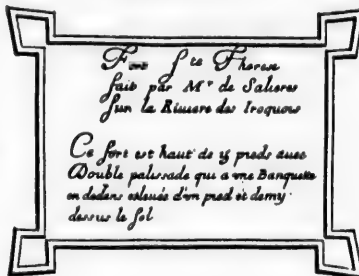 Fort Ste Therese
fait par Mr de Salieres
sur la Riuiere des Iroquois
Ce fort est haut de 15 pieds auec
Double palissade qui a vne Banquette
en dedans esleuée d'vn pied et demy
dessus le sol